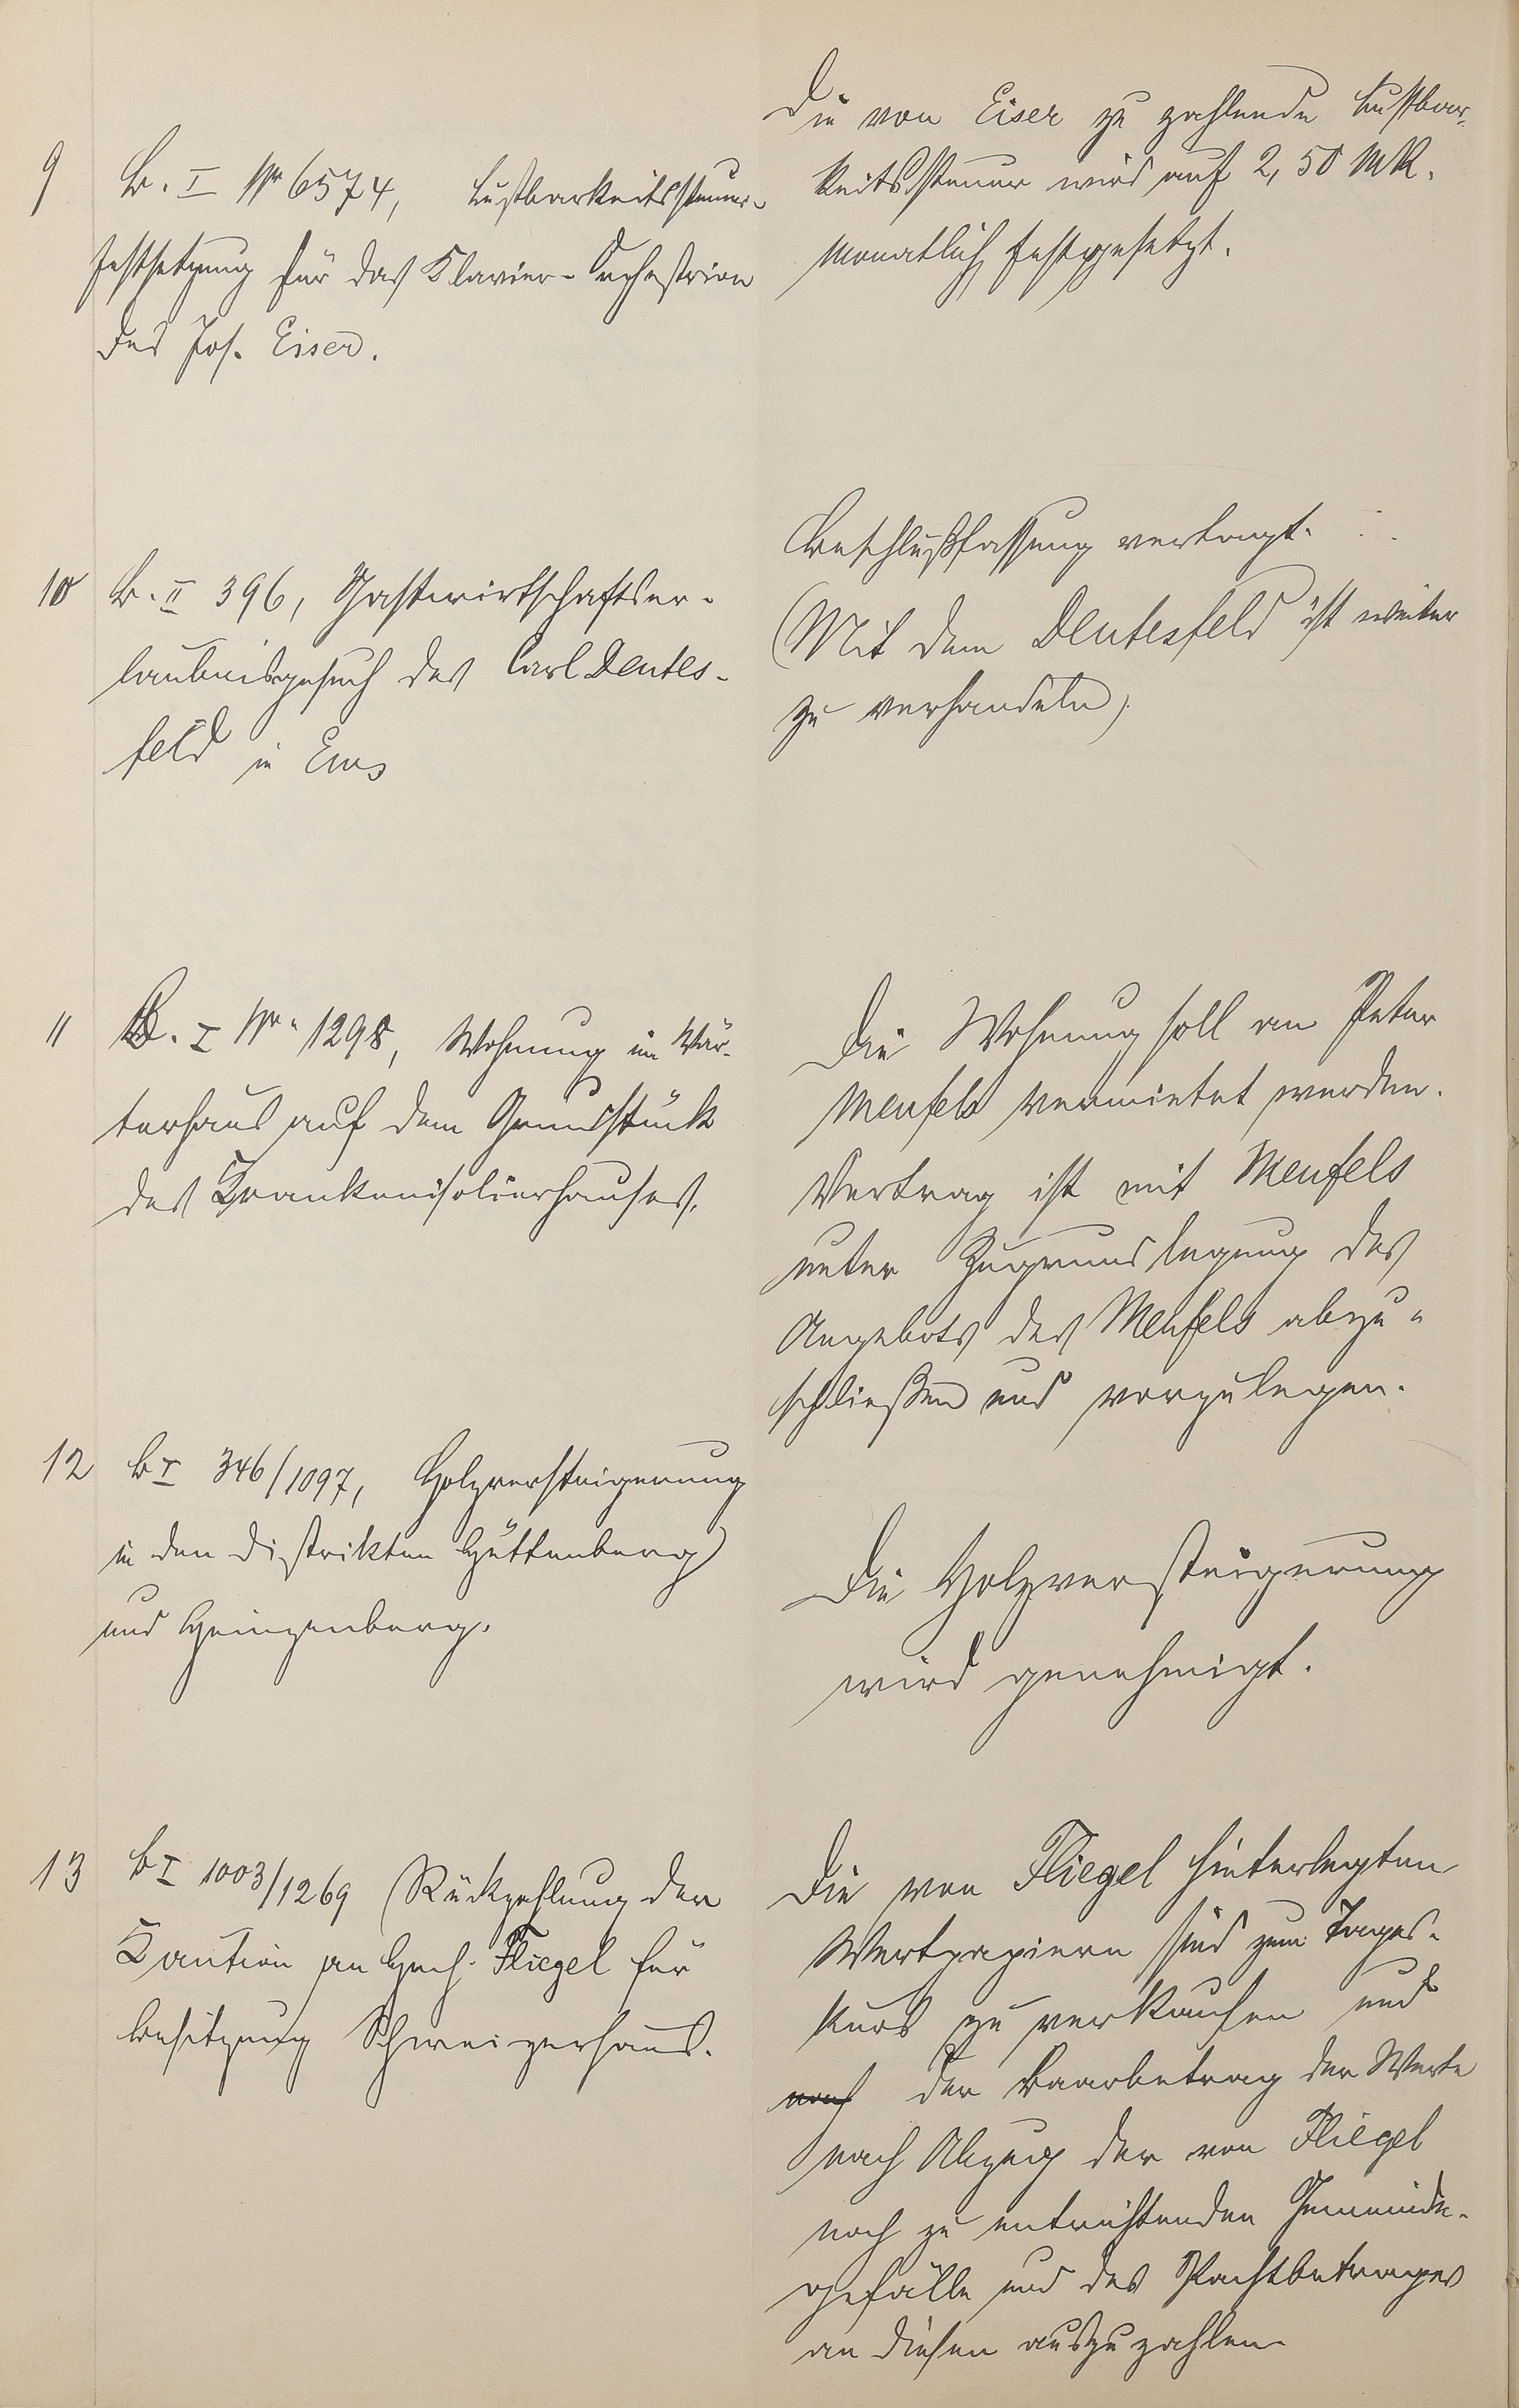 9 B. I Nr 6574, Lustbarkeitssteuer-
festsetzung für das Klavier-Orchestrion
des Jos. Eiser.
Die von Eiser zu zahlende Lustbar-
keitssteuer wird auf 2,50 MK.
monatlich festgesetzt.
10 B. II 396, Gastwirtschaftser-
laubnisgesuch des Carl Deutes-
feld in Ems
Beschlußfassung vertagt.
(Mit dem Deutesfeld ist weiter
zu verhandeln).
11 B. I Nr. 1298, Wohnung im Wär-
terhaus auf dem Grundstück
des Krankenisolierhauses.
Die Wohnung soll an Peter
Meufels vermietet werden.
Vertrag ist mit Meufels
unter Zugrundlegung des
Angebots des Meufels abzu-
schließen und vorzulegen.
12 B I 346/1097, Holzversteigerung
in den Distrikten Hüttenberg
und Heinzenberg.
Die Holzversteigerung
wird genehmigt.
13 B I 1003/1269 Rückzahlung der
Kaution an Hch. Fliegel für
Besitzung Schweizerhaus.
Die von Fliegel hinterlegten
Wertpapiere sind zum Tages-
kurs zu verkaufen und
noch der Baarbetrag der Werte
nach Abzug der von Fliegel
noch zu entrichtenden Gemeinde-
gefälle und des Pachtbetrages
an diesen auszuzahlen.